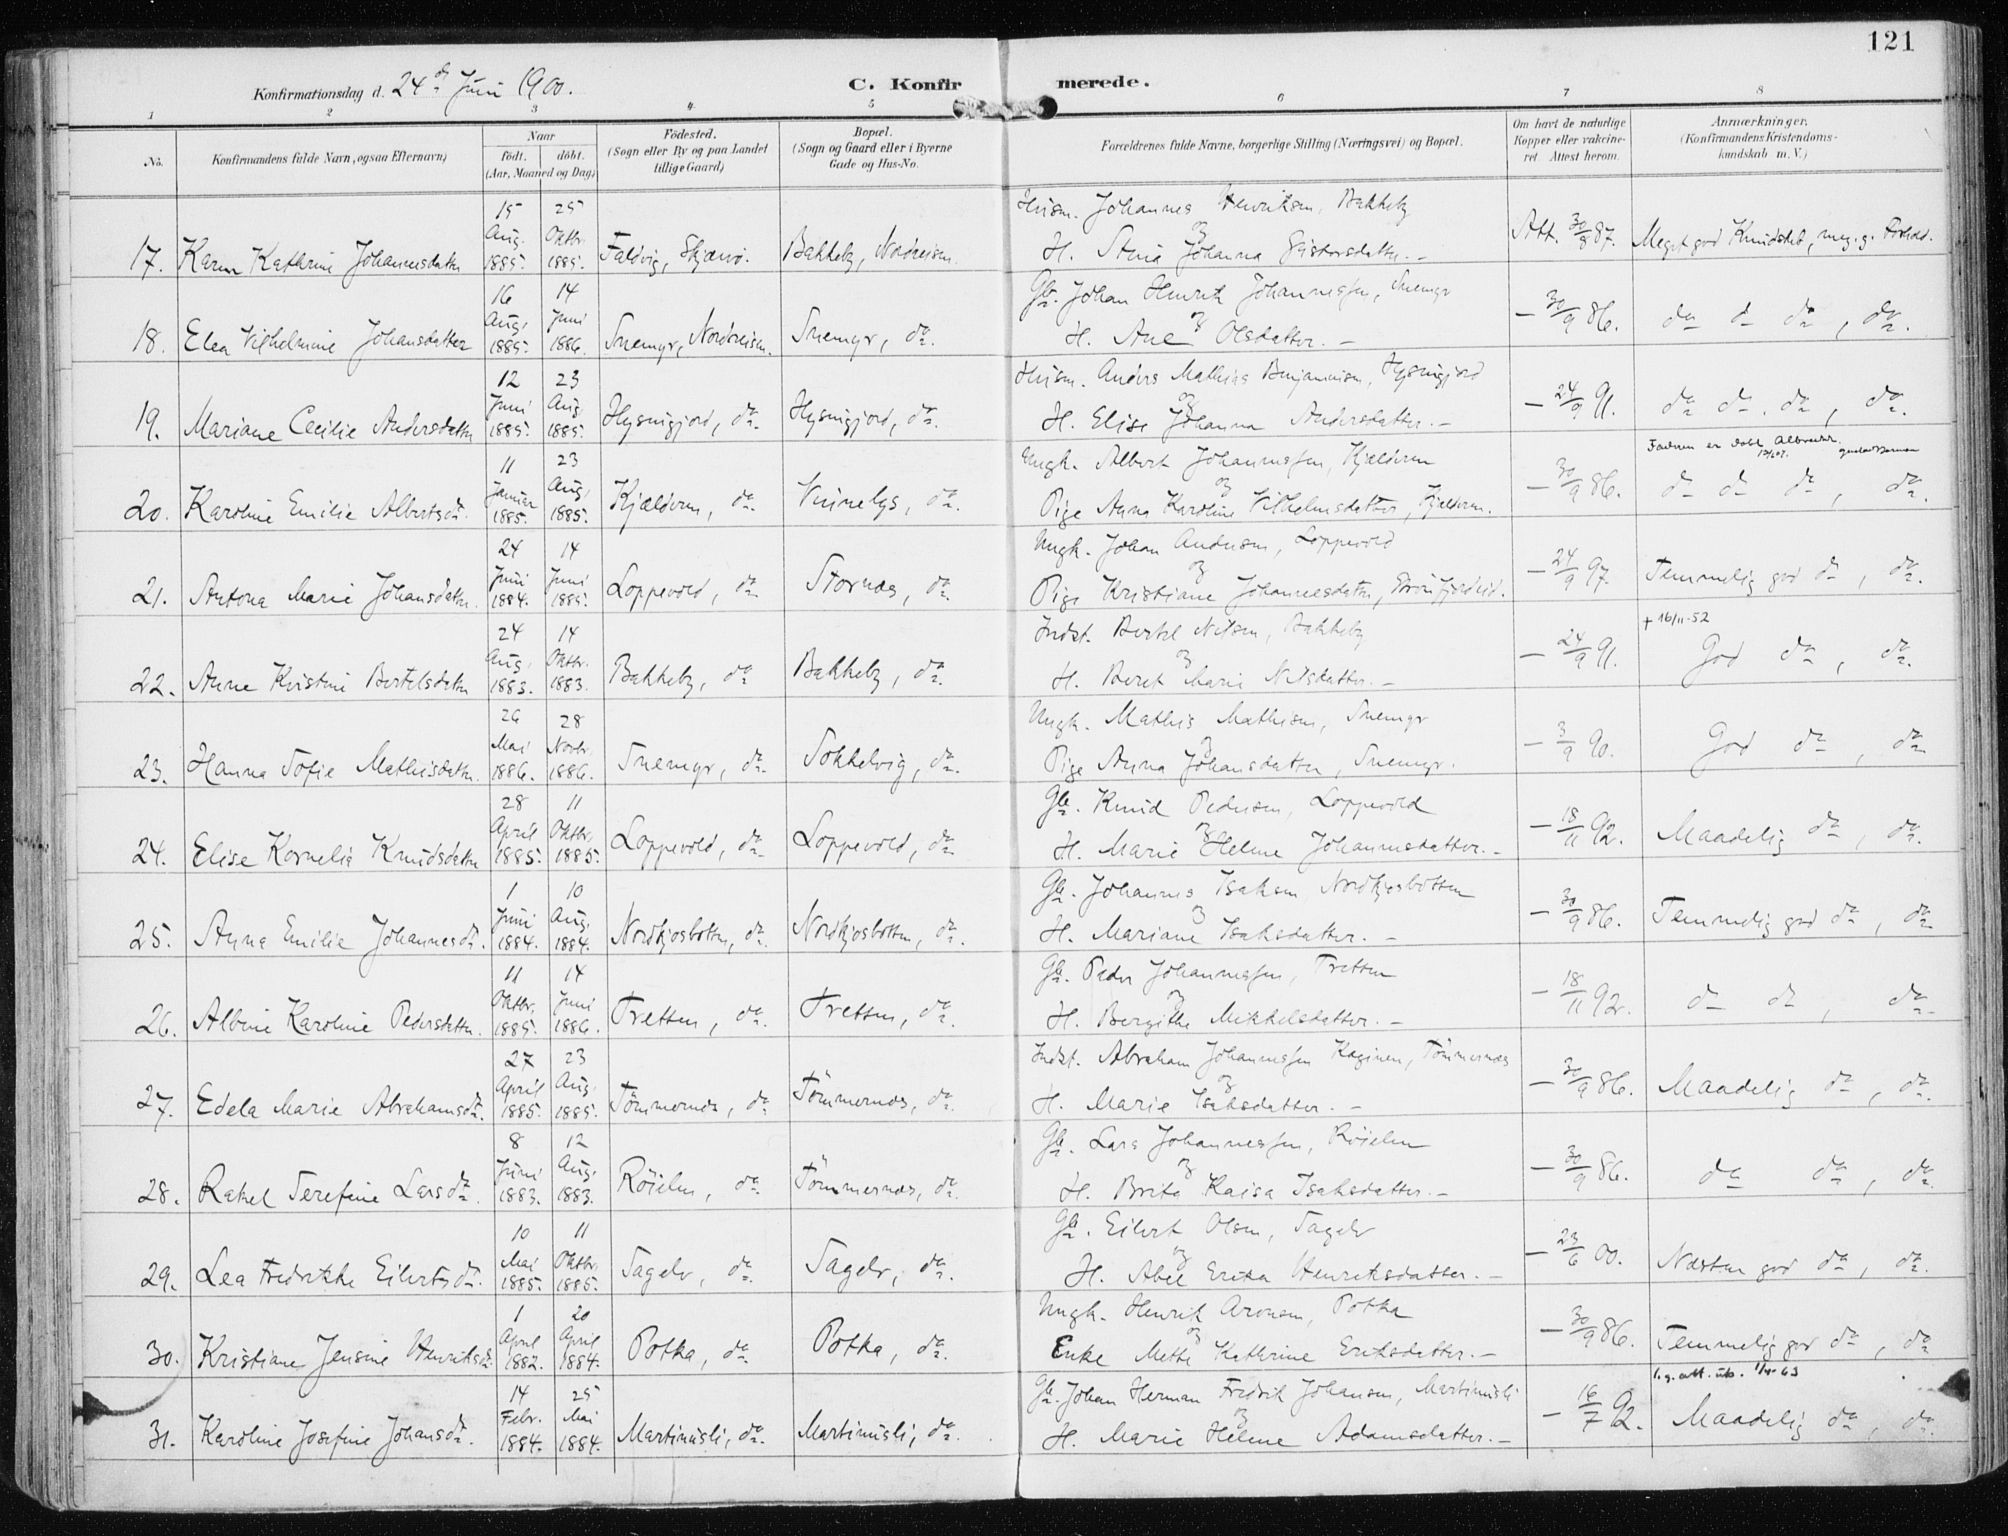 121
Konfirmationsdag d. 24de Juni 1900.
C. Konfirmerede.
1 2 3 4 5 6 7 8
No. Konfirmandens fulde Navn, ogsaa Efternavn) Naar födt. döbt. (Aar, Maaned og Dag) Födested. (Sogn eller By og paa Landet tillige Gaard) Bopæl. (Sogn og Gaard eller i Byerne Gade og Hus-No. Forældrenes fulde Navne, borgerlige Stilling (Næringsvei) og Bopæl. Om havt de naturlige Kopper eller vakcineret. Attest herom. Anmærkninger. (Konfirmandens Kristendomskundskab m. V.)
17. Karen Kathrine Johannesdatter 15 Aug. 1885. 25 Oktbr. 1885. Faldvig, Skjærvö. Bakkeby, Nordreisen. Husm. Johannes Henriksen, Bakkeby og H. Stina Johanna Gustavsdatter. – Att. 30/8 87. Meget god Kundskab, meg. g. Forhold.
18. Elea Vilhelmine Johansdatter 16 Aug. 1885. 14 Juni 1886. Snemyr, Nordreisen. Snemyr, do. Gb. Johan Henrik Johannessen, Snemyr og H. Ane Olsdatter. – – 30/9 86. do d do, do.
19. Mariane Cecilie Andersdatter 12 Juni 1885. 23 Aug. 1885. Hysingjord, do. Hysingjord, do. Husm. Anders Mathias Benjaminsen, Hysingjord og H. Elise Johanna Andersdatter. – – 24/9 91. do do. do, do.
20. Karoline Emilie Albertsdr. 11 Januar 1885. 23 Aug. 1885. Kjældren, do. Vinnelys, do. Ungk. Albert Johannessen, Kjældren og Pige Anna Karoline Vilhelmsdatter, Kjældren. – 30/9 86. Faderen er døbt Albrecht. do do do, do.
21. Antona Marie Johansdatter. 24 Juni 1884. 14 Juni 1885. Loppevold, do Stornæs, do. Ungk. Johan Andersen, Loppevold og Pige Kristiane Johannesdatter, – 24/9 97. Temmelig god do, do.
22. Anne Kristine Bertelsdatter 24 Aug. 1883. 14 Oktbr. 1883. Bakkeby, do Bakkeby, do. Indst. Bertel Nilsen, Bakkeby og H. Beret Marie Nilsdatter. – – 24/9 91. + 16/11-52 God do, do.
23. Hanna Sofie Mathisdatter. 26 Mai 1886. 28 Novbr. 1886. Snemyr, do. Sokkelvig, do. Ungk. Mathis Mathisen, Snemyr og Pige Anna Johansdatter, Snemyr. – 3/9 90. God do, do
24. Elise Kornelia Knudsdatter 28 April 1885. 11 Oktbr. 1885. Loppevold, do Loppevold, do. Gb. Knud Pedersen, Loppevold og H. Marie Helene Johannesdatter. – – 18/11 92. Maadelig do, do.
25. Anna Emilie Johannesdr. 1 Juni 1884. 10 Aug. 1884. Nordkjosbotten, do. Nordkjosbotten, do. Gb. Johannes Isaksen Nordkjosbotten og H. Mariane Isaksdatter. – – 30/9 86. Temmelig god do, do
26. Albine Karoline Pedersdatter. 11 Oktbr. 1885. 14 Juni 1886. Tretten, do. Tretten, do. Gb. Peder Johannessen, Tretten og H. Bergithe Mikkelsdatter. – – 18/11 92. do do, do.
27. Edela Marie Abrahamsdr. 27 April 1885. 23 Aug. 1885. Tömmernæs, do Tömmernæs, do. Indst. Abraham Johannessen Kaginen, Tömmernæs og H. Marie Isaksdatter. – – 30/9 86. Maadelig do, do.
28. Rakel Serefine Larsdr. 8 Juni 1883. 12 Aug. 1883. Röielen, do. Tömmernæs, do. Gb. Lars Johannessen, Röielen og H. Brita Kaisa Isaksdatter. – – 30/9 86. do do, do.
29. Lea Fredrikke Eilertsdr. 10 Mai 1885. 11 Oktbr. 1885. Sagelv, do. Sagelv, do. Gb. Eilert Olsen, Sagelv og H. Abel Erika Henriksdatter. – – 23/6 00. Næsten god do, do.
30. Kristiane Jensine Henriksdr. 1 April 1882. 20 April 1884. Potka, do. Potka, do. Ungk. Henrik Aronsen, Potka og Enke Mette Kathrine Eriksdatter. – – 30/9 86. Temmelig god do, do
31. Karoline Josefine Johansdr. 14 Febr. 1884. 25 Mai 1884. Martinusli, do. Martinusli, do. Gb. Johan Herman Fredrik Johansen, Martinusli og H. Marie Helene Adamsdatter. – – 16/7 92. l.g. att. utb. 1/4-63 Maadelig do, do.